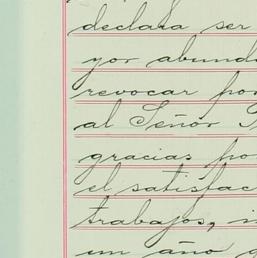 declara ser
yor abund
revocar por
al Señor
gracias po
el satisfac
trabajos, i
un año g